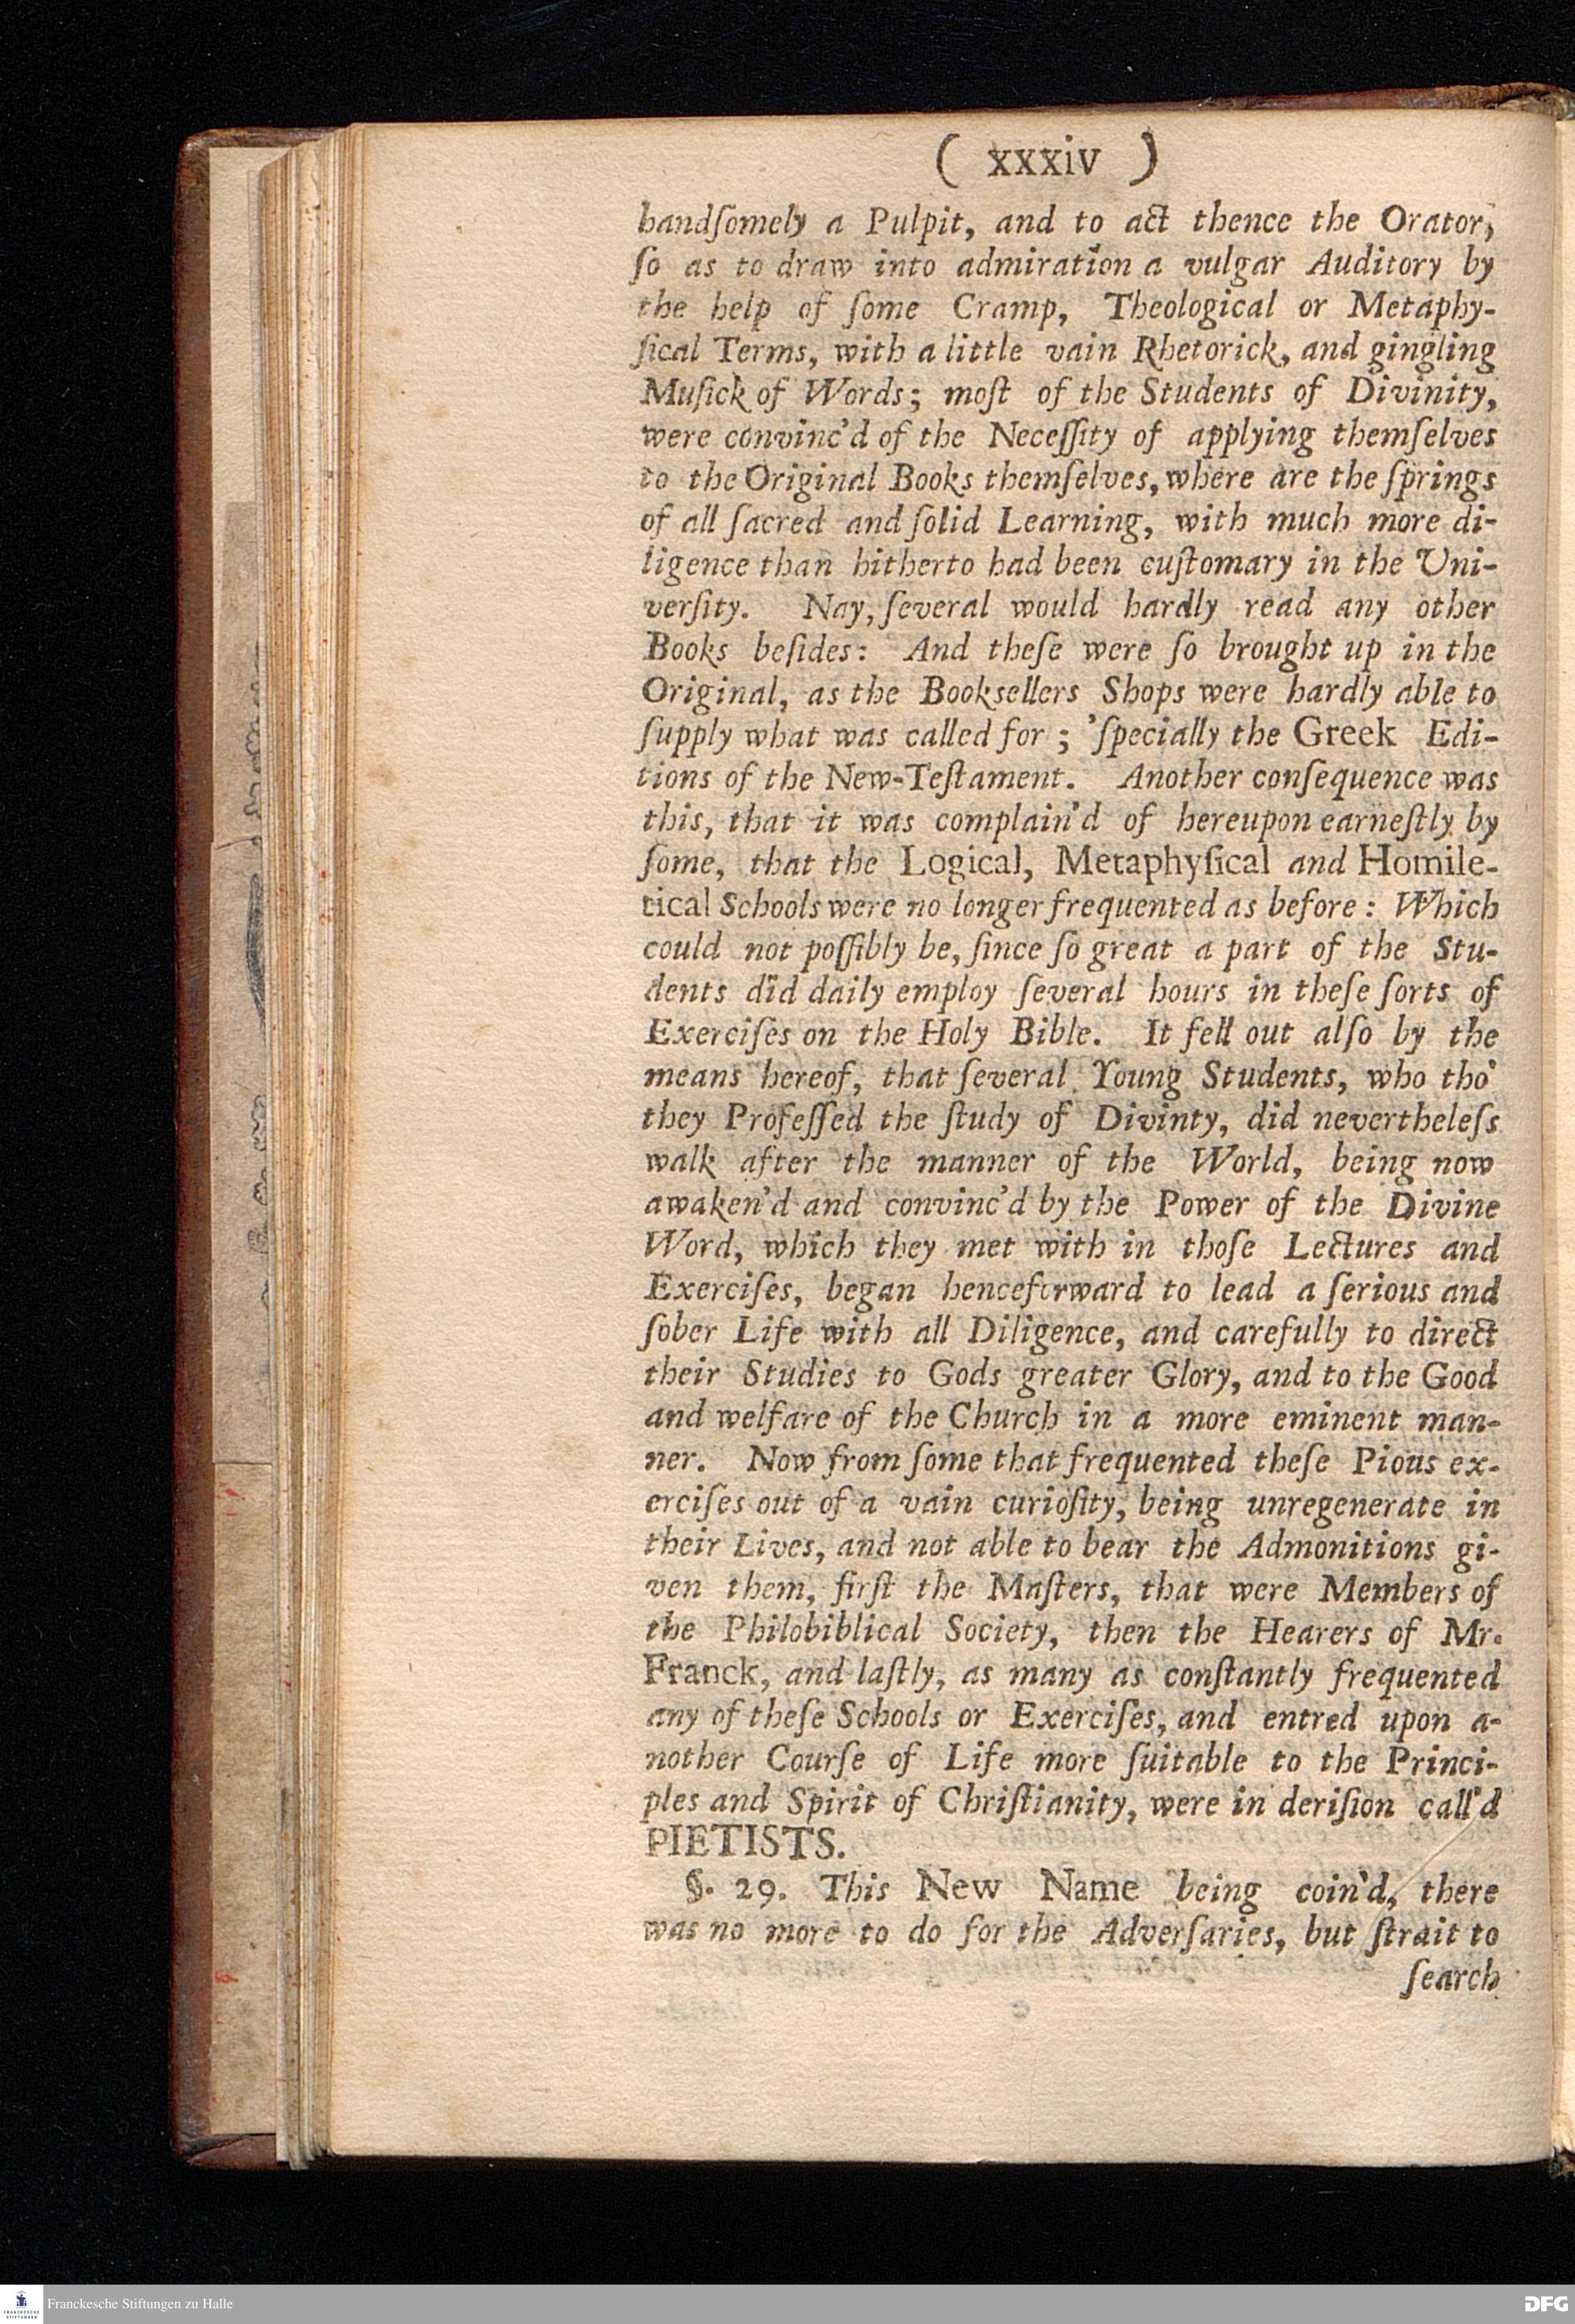 ( xxxiv )
handſomely a Pulpit, and to act thence the Orator,
ſo as to draw into admiration a vulgar Auditory by
the help of ſome Cramp, Theological or Metaphy-
ſical Terms, with a little vain Rhetorick, and gingling
Muſick of Words; moſt of the Students of Divinity,
were convinc'd of the Neceſſity of applying themſelves
to the Original Books themſelves, where are the ſprings
of all ſacred and ſolid Learning, with much more di-
ligence than hitherto had been cuſtomary in the Uni-
verſity. Nay, ſeveral would hardly read any other
Books beſides: And theſe were ſo brought up in the
Original, as the Bookſellers Shops were hardly able to
ſupply what was called for; 'ſpecially the Greek Edi-
tions of the New-Teſtament. Another conſequence was
this, that it was complain'd of hereupon earneſtly by
ſome, that the Logical, Metaphyſical and Homile-
tical Schools were no longer frequented as before: Which
could not poſſibly be, ſince ſo great a part of the Stu-
dents did daily employ ſeveral hours in theſe ſorts of
Exerciſes on the Holy Bible. It fell out alſo by the
means hereof, that ſeveral Young Students, who tho'
they Profeſſed the ſtudy of Divinty, did nevertheleſs
walk after the manner of the World, being now
awaken'd and convinc'd by the Power of the Divine
Word, which they met with in thoſe Lectures and
Exerciſes, began henceforward to lead a ſerious and
ſober Life with all Diligence, and carefully to direct
their Studies to Gods greater Glory, and to the Good
and welfare of the Church in a more eminent man-
ner. Now from ſome that frequented theſe Pious ex-
erciſes out of a vain curioſity, being unregenerate in
their Lives, and not able to bear the Admonitions gi-
ven them, firſt the Maſters, that were Members of
the Philobiblical Society, then the Hearers of Mr.
Franck, and laſtly, as many as conſtantly frequented
any of theſe Schools or Exerciſes, and entred upon a-
nother Courſe of Life more ſuitable to the Princi-
ples and Spirit of Chriſtianity, were in deriſion call'd
PIETISTS.
§. 29. This New Name being coin'd, there
was no more to do for the Adverſaries, but ſtrait to
ſearch
Franckesche Stiftungen zu Halle
DFG